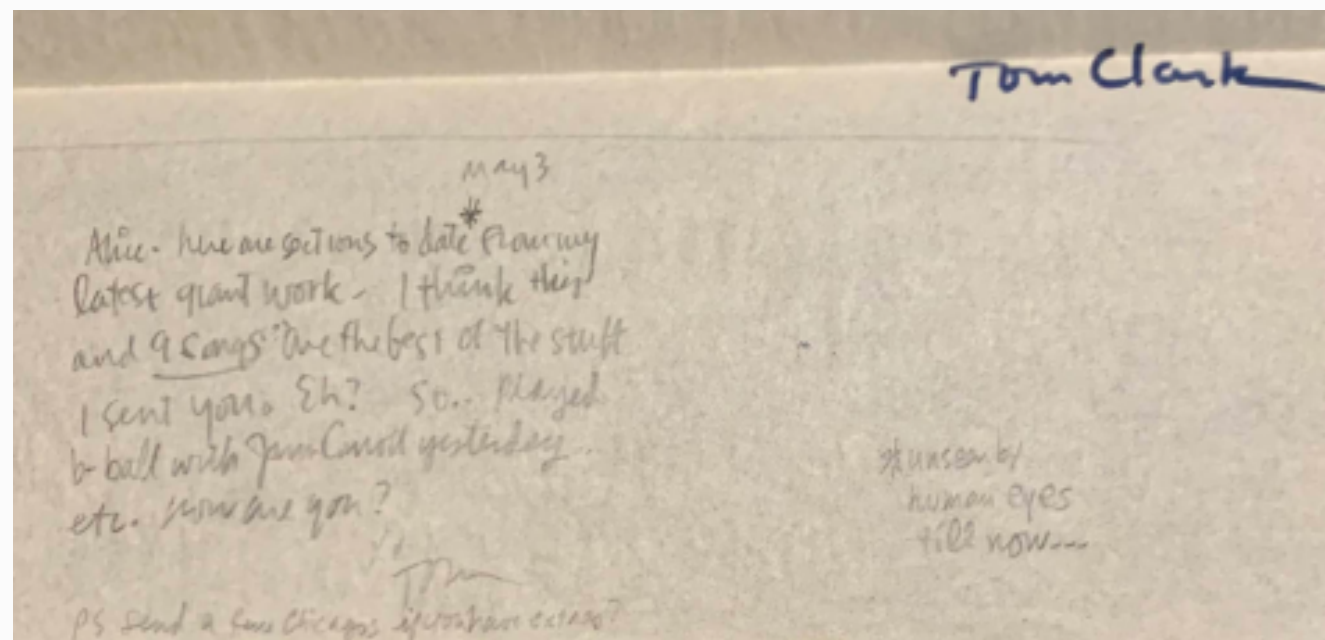 Tom Clark
May 3
Alice - here are sections to date* from my
latest grant work - I think this
and 9 Songs are the best of the stuff
I sent you. Eh? So.. Played
b-ball with Jim Carroll yesterday..
etc. How are you?
Tom
PS send a few Chicagos if you have extras?
*unseen by
human eyes
till now...